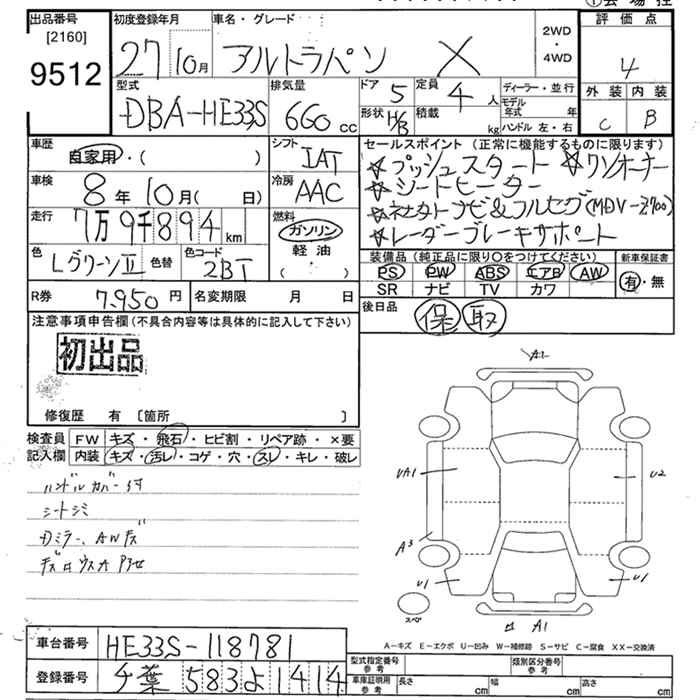 出品番号 初度登録年月 車名・グレード 2WD・4WD 評価点
[2160]
9512 27 10月 アルトラパン X 4
型式 排気量 ドア 5 定員 4人 ディーラー・並行 外装 内装
DBA-HE33S 660cc 形状 H/B 積載 kg モデル年式 年 C B
ハンドル 左・右
車歴 自家用・( ) シフト IAT セールスポイント (正常に機能するものに限ります)
☆プッシュスタート ☆ワンオーナー
車検 8年10月( 日) 冷房 AAC ☆シートヒーター
走行 7万9千894km 燃料 ガソリン 軽油 ( )
☆レーダーブレーキサポート
色 Lグリーン II 色替 色コード 2BT 装備品 (純正品に限り○をつけてください) 新車保証書
PS PW ABS エアB AW 有・無
SR ナビ TV カワ
R券 7,950円 名変期限 月 日 後日品 保 取
注意事項申告欄 (不具合内容等は具体的に記入して下さい)
初出品
修復歴 有 [箇所 ]
検査員 FW キズ・飛石・ヒビ割・リペア跡・×要
記入欄 内装 キズ・汚レ・コゲ・穴・スレ・キレ・破レ
ハンドルカバー付
シートシミ
A1
UA1 U2
A3
U1 U1
スペア
A1
A-キズ E-エクボ U-凹み W-補修跡 S-サビ C-腐食 XX-交換済
車台番号 HE33S-118781
登録番号 千葉 583 よ 1414
型式指定番号 参考 類別区分番号 参考
車庫証明用 参考 長さ cm 幅 cm 高さ cm